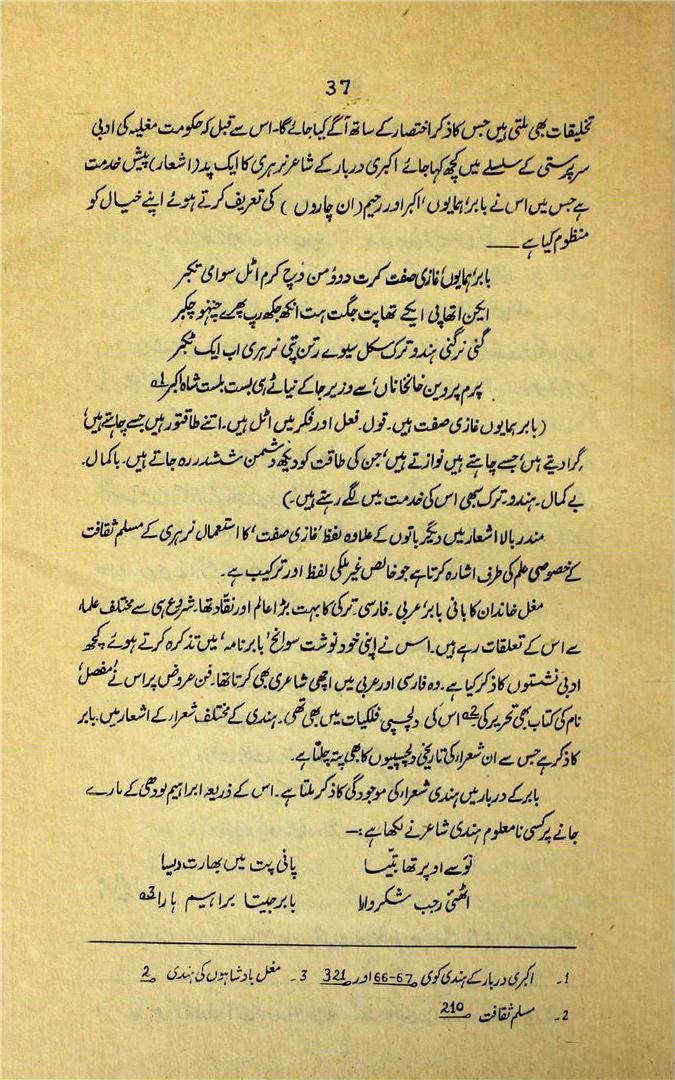 37
تخلیقات بھی ملتی ہیں جس کا ذکر اختصار کے ساتھ آگے کیا جائے گا۔ اس سے قبل کہ حکومت مغلیہ کی ادبی
سرپرستی کے سلسلے میں کچھ کہا جائے اکبری دربار کے شاعر نرہری کا ایک پد (اشعار) پیش خدمت
ہے جس میں اس نے بابر، ہمایوں، اکبر اور رحیم (ان چاروں) کی تعریف کرتے ہوئے اپنے خیال کو
منظوم کیا ہے ——
بابر، ہمایوں، غازی صفت کمرت دوؤ من وچ کرم اٹل سوامی تکبر
ایکن اتھاپی ایکے تھاپت جگت ہت انکھ جکھ رپ پھرے چنہو چکبر
گنی نرگنی ہندو ترک سکل سیوے رتن پتی نرہری اب ایک ٹبکر
پرم پروین خانخاناں، سے وزیر جا کے نیائے ہی بست بلست شاہ اکبر 1
(بابر ہمایوں غازی صفت ہیں۔ قول۔ فعل اور فکر میں اٹل ہیں۔ اتنے طاقتور ہیں جسے چاہتے ہیں،
گرا دیتے ہیں، جسے چاہتے ہیں نوازتے ہیں، جن کی طاقت کو دیکھ دشمن ششدر رہ جاتے ہیں۔ باکمال۔
بے کمال۔ ہندو۔ ترک سبھی اس کی خدمت میں لگے رہتے ہیں۔)
مندر بالا اشعار میں دیگر باتوں کے علاوہ لفظ ’غازی صفت‘ کا استعمال نرہری کے مسلم ثقافت
کے خصوصی علم کی طرف اشارہ کرتا ہے جو خالص غیر ملکی لفظ اور ترکیب ہے۔
مغل خاندان کا بانی بابر، عربی۔ فارسی۔ ترکی کا بہت بڑا عالم اور نقّاد تھا۔ شروع ہی سے مختلف علماء
سے اس کے تعلقات رہے ہیں۔ اس نے اپنی خود نوشت سوانح ’بابر نامہ‘ میں تذکرہ کرتے ہوئے کچھ
ادبی نشستوں کا ذکر کیا ہے۔ وہ فارسی اور عربی میں اچھی شاعری بھی کرتا تھا۔ فن عروض پر اس نے ’مفصل‘
نام کی کتاب بھی تحریر کی 2 اس کی دلچسپی فلکیات میں بھی تھی۔ ہندی کے مختلف شعراء کے اشعار میں، بابر
کا ذکر ہے جس سے ان شعراء کی تاریخی دلچسپیوں کا بھی پتہ چلتا ہے۔
بابر کے دربار میں ہندی شعراء کی موجودگی کا ذکر ملتا ہے۔ اس کے ذریعہ ابراہیم لودھی کے مارے
جانے پر کسی نامعلوم ہندی شاعر نے لکھا ہے :—
نَوسے اوپر تھا بتّیسا پانی پت میں بھارت دیسا
اٹھئی رجب شکر وارا بابر جیتا براہیم ہارا 3
1۔ اکبری دربار کے ہندی کوی ص 66-67 اور ص 321 3۔ مغل بادشاہوں کی ہندی ص 2
2۔ مسلم ثقافت ص 210